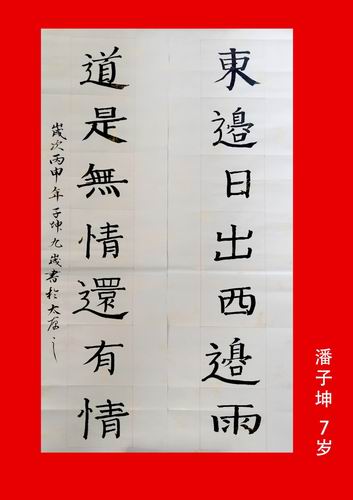 東邊日出西邊雨
道是無情還有情
歲次丙申年子坤九歲書於太原
潘子坤 7岁